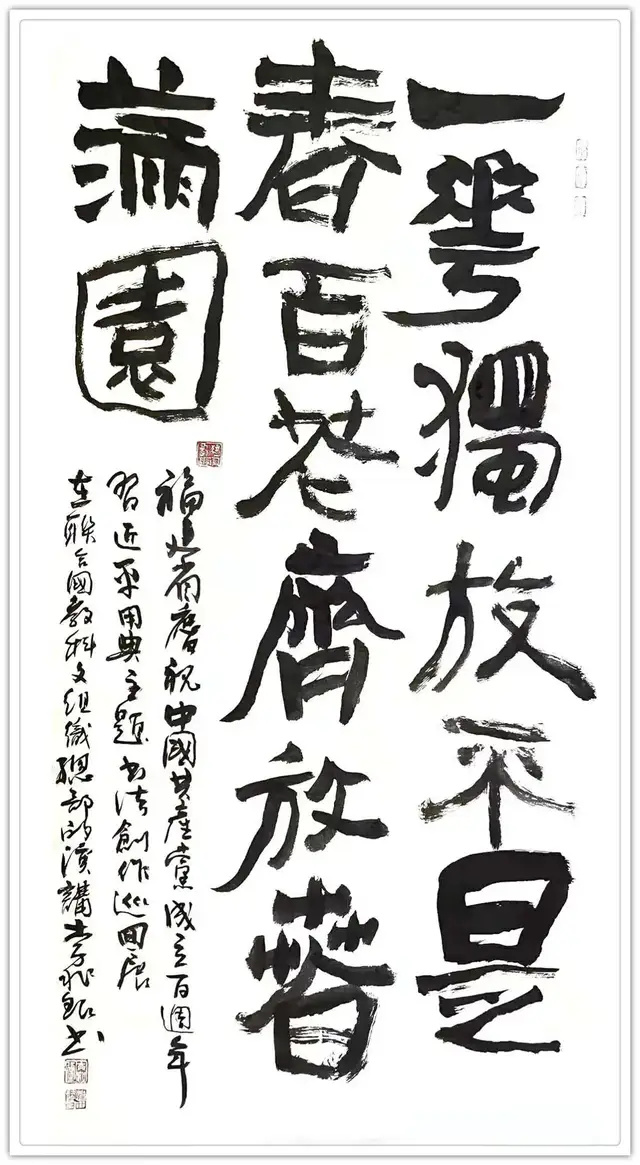 一華獨放不是
春百花齊放春
滿園
福建省慶祝中國共產黨成立百週年
習近平用典主題書法創作巡回展
在聯合國教科文組織總部的演講 李
書